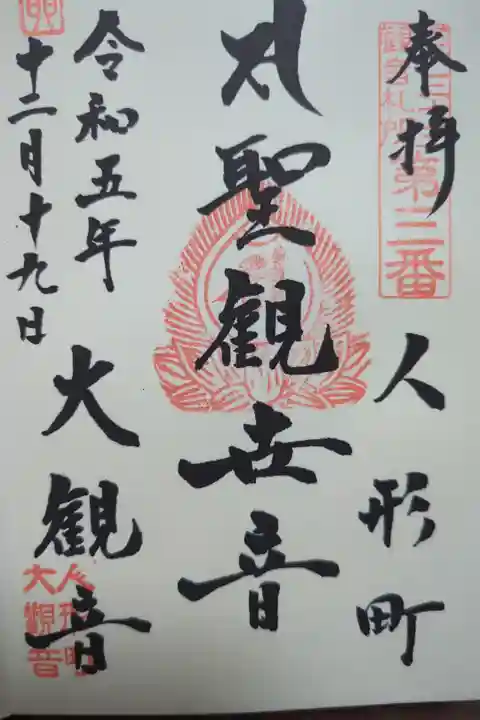 奉拝
第三番
人形町
聖観世音
令和五年
十二月十九日
大観音
人形町
大観音